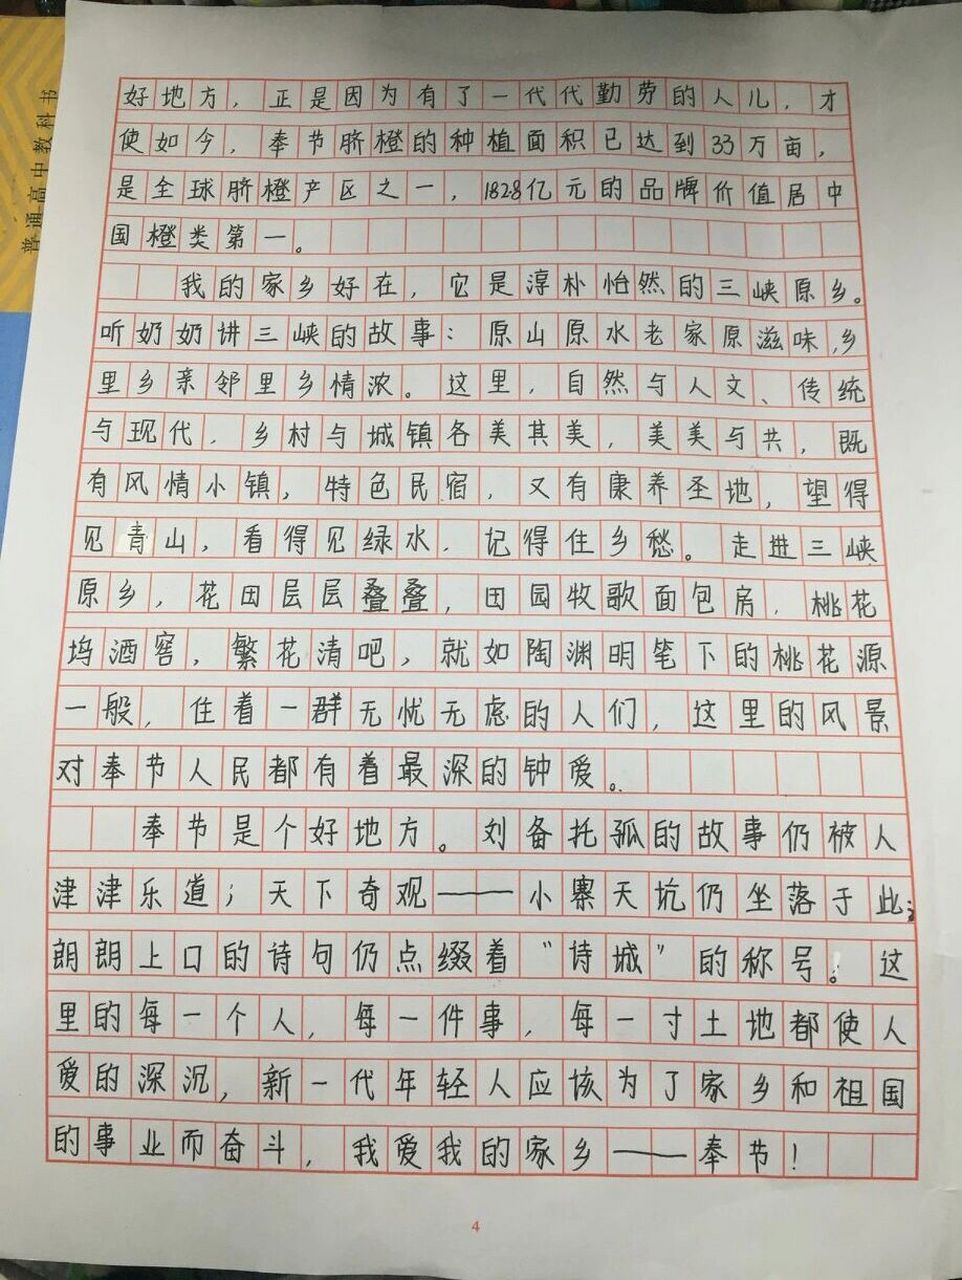 普通高中教科书
好地方，正是因为有了一代代勤劳的人儿，才
使如今，奉节脐橙的种植面积已达到33万亩，
是全球脐橙产区之一，182.8亿元的品牌价值居中
国橙类第一。
我的家乡好在，它是淳朴怡然的三峡原乡。
听奶奶讲三峡的故事：原山原水老家原滋味，乡
里乡亲邻里乡情浓。这里，自然与人文、传统
与现代，乡村与城镇各美其美，美美与共，既
有风情小镇，特色民宿，又有康养圣地，望得
见青山，看得见绿水，记得住乡愁。走进三峡
原乡，花田层层叠叠，田园牧歌面包房，桃花
坞酒窖，繁花清吧，就如陶渊明笔下的桃花源
一般，住着一群无忧无虑的人们，这里的风景
对奉节人民都有着最深的钟爱。
奉节是个好地方。刘备托孤的故事仍被人
津津乐道；天下奇观——小寨天坑仍坐落于此；
朗朗上口的诗句仍点缀着“诗城”的称号。这
里的每一个人，每一件事，每一寸土地都使人
爱的深沉，新一代年轻人应该为了家乡和祖国
的事业而奋斗，我爱我的家乡——奉节！
4